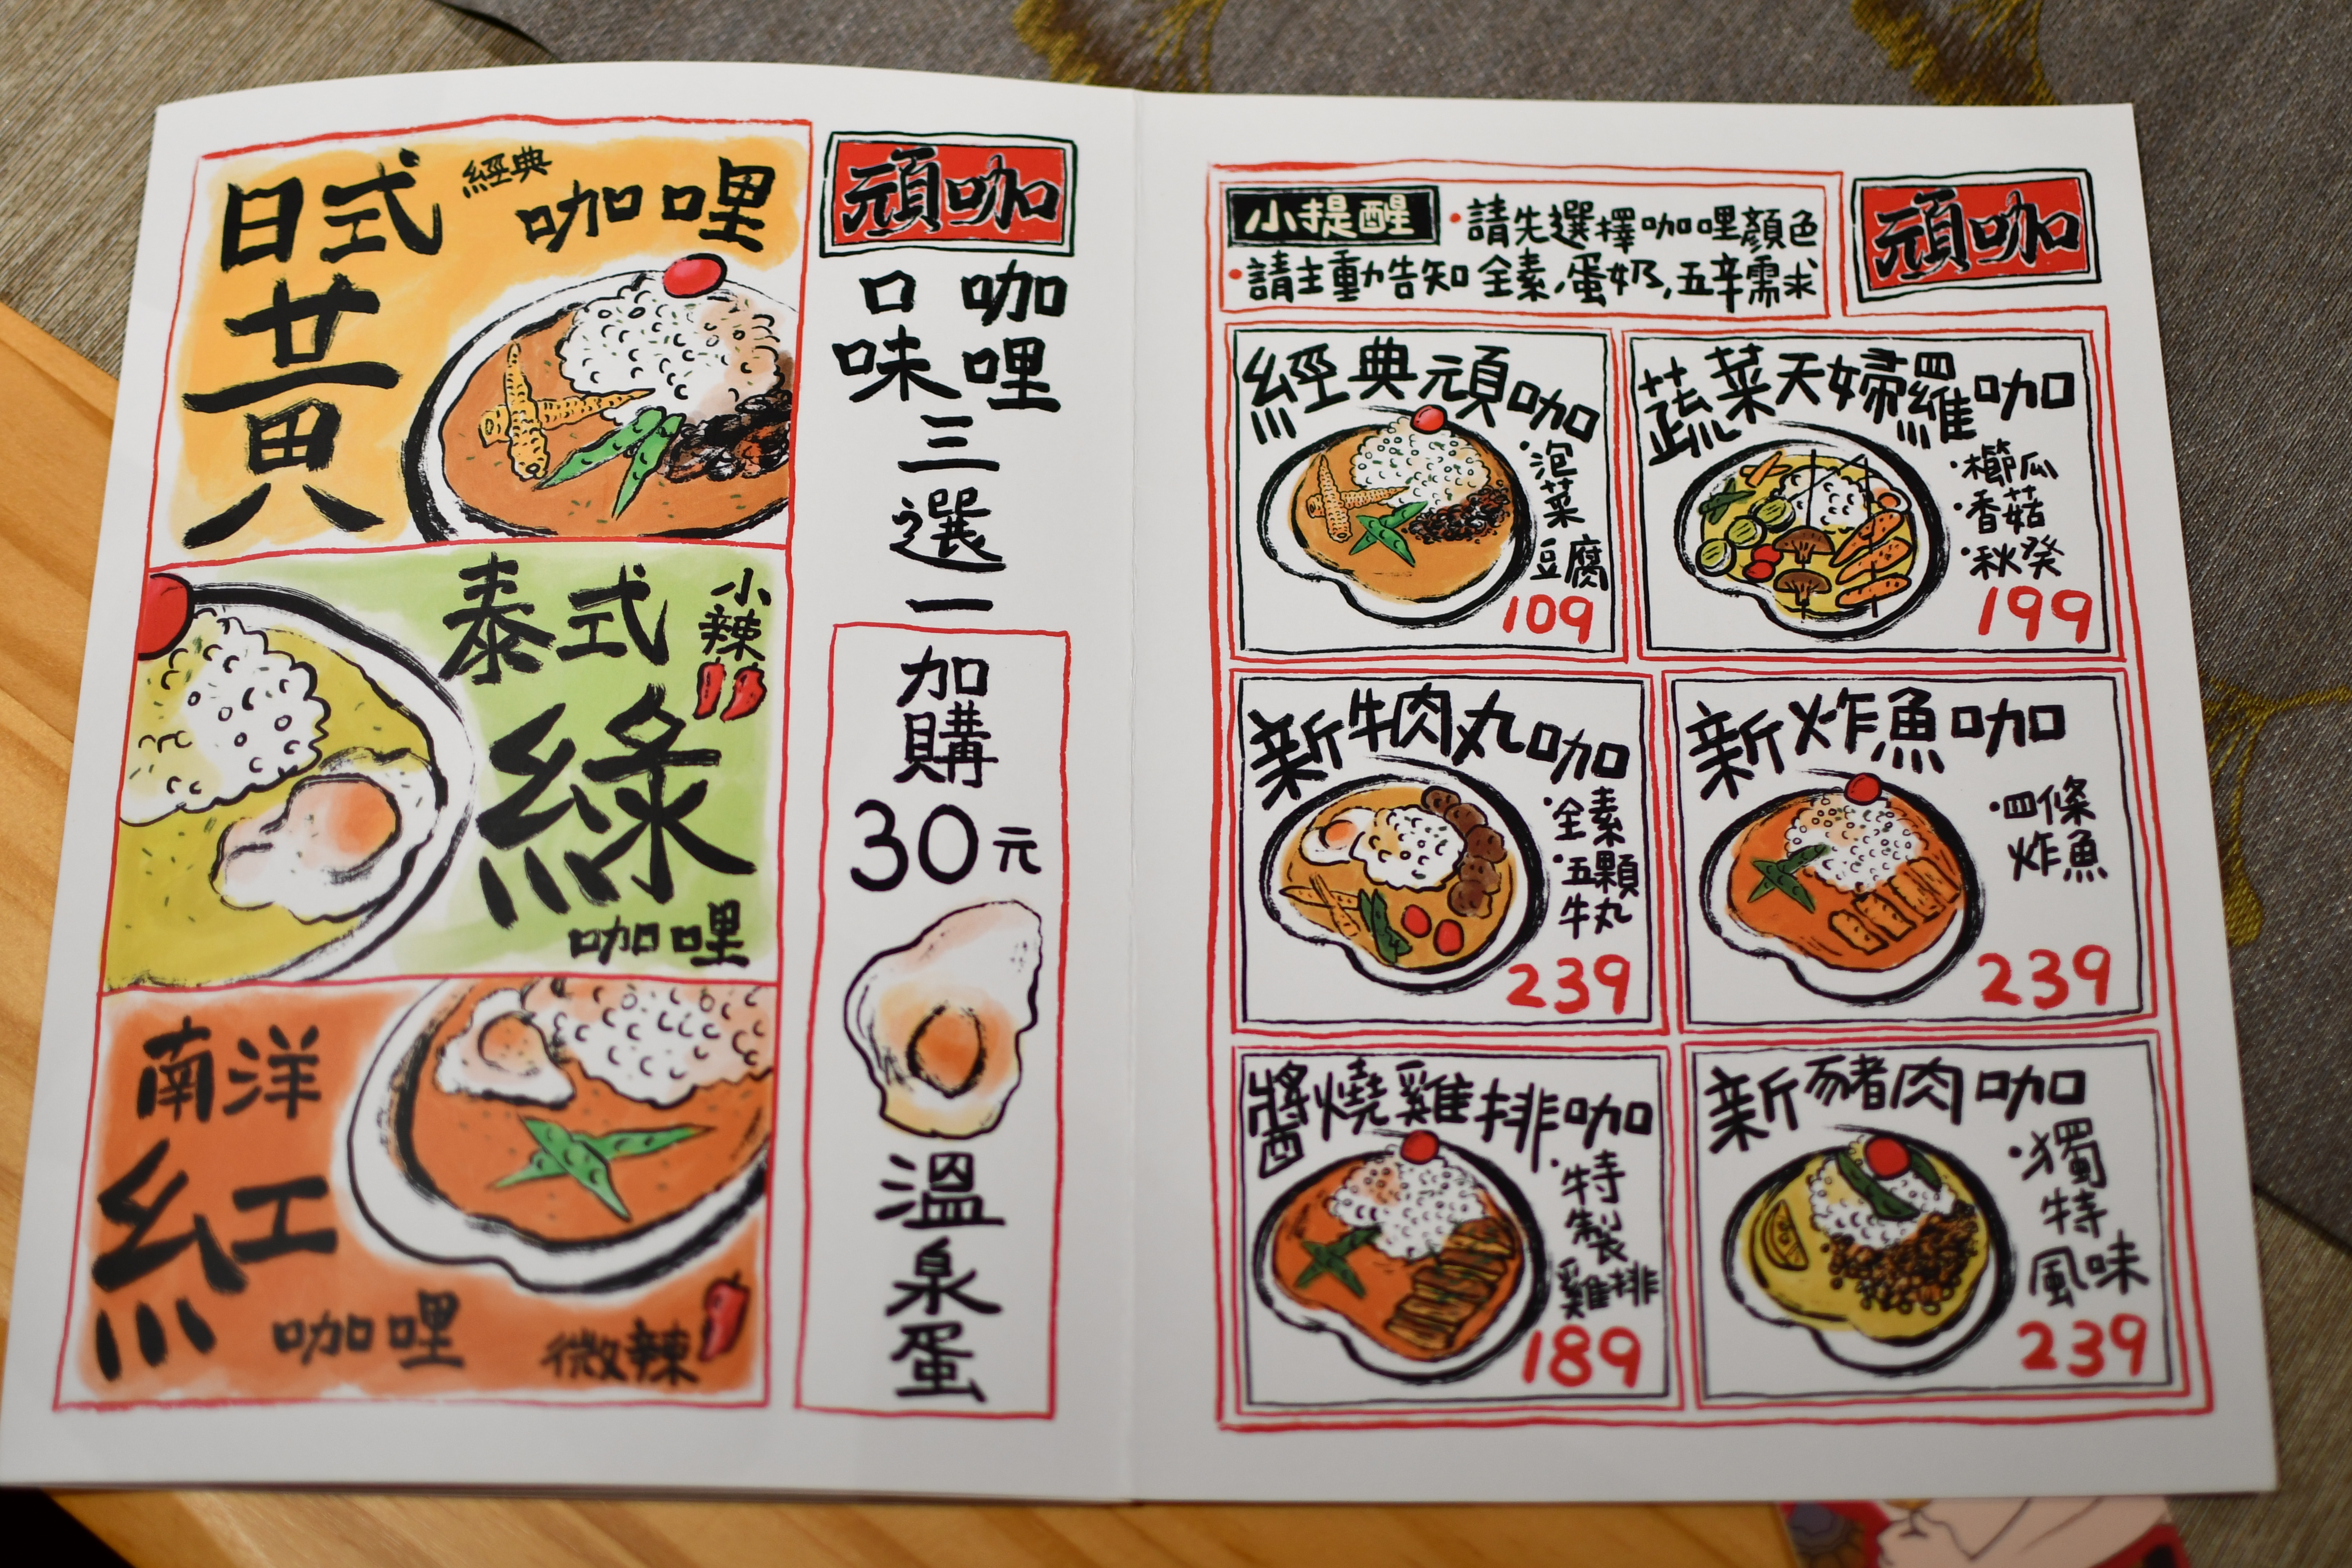 日式
經典
咖哩
黃
泰式
小辣
綠
咖哩
南洋
紅
咖哩
微辣
頑咖
咖哩
口味
三選一
加購
30元
溫泉蛋
小提醒
•請先選擇咖哩顏色
•請主動告知全素,蛋奶,五辛需求
頑咖
經典頑咖
·泡菜
豆腐
109
蔬菜天婦羅咖
·櫛瓜
·香菇
·秋葵
199
新牛肉丸咖
·全素
·五顆
牛丸
239
新炸魚咖
·四條
炸魚
239
醬燒雞排咖
·特製
雞排
189
新豬肉咖
·獨特
風味
239